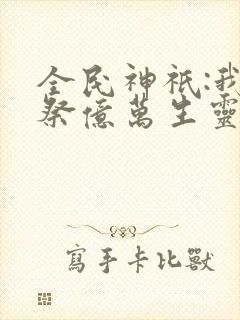 全民神祇:我
祭億萬生靈
寫手卡比獸